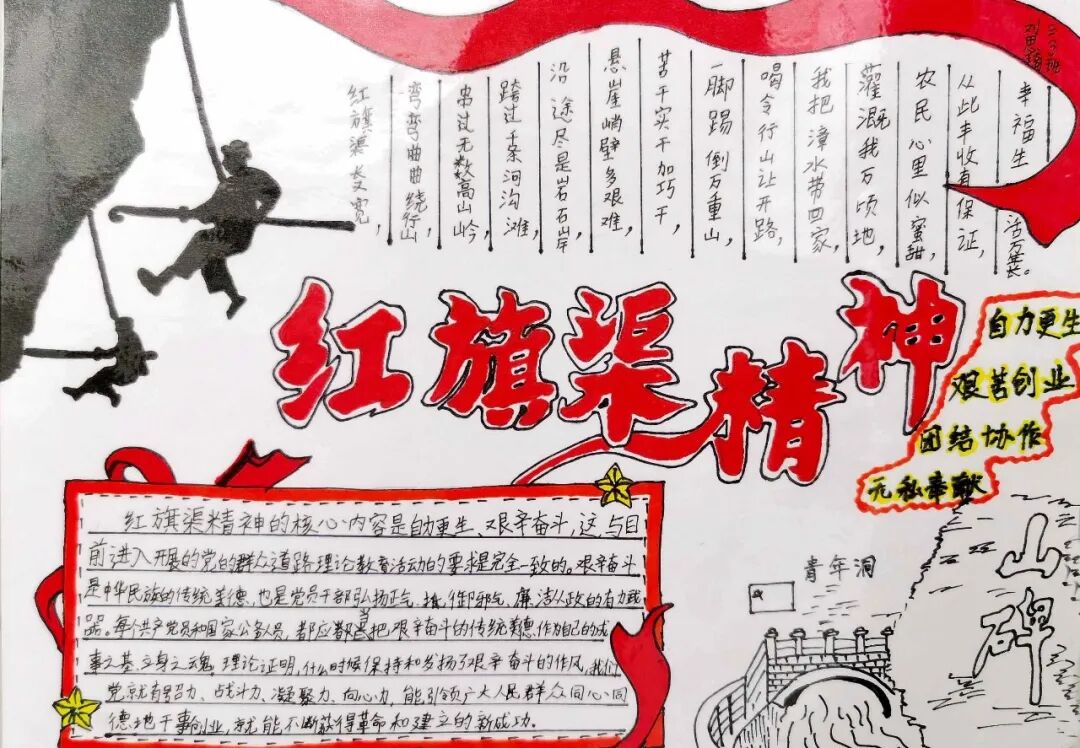 红旗渠长又宽，
弯弯曲曲绕行山
串过无数高山岭，
跨过千条河沟滩，
沿途尽是岩石岸
悬崖峭壁多艰难，
苦干实干加巧干，
一脚踢倒万重山，
喝令行山让开路，
我把漳水带回家，
灌溉我万顷地，
农民心里似蜜甜，
从此丰收有保证，
幸福生活万年长。
红旗渠精神
自力更生
艰苦创业
团结协作
无私奉献
红旗渠精神的核心内容是自力更生、艰辛奋斗,这与目
前进入开展的党的群众道路理论教育活动的要求是完全一致的。艰辛奋斗
是中华民族的传统美德,也是党员干部弘扬正气、抵御邪气、廉洁从政的有力武
器。每个共产党员和国家公务员,都应当把艰辛奋斗的传统美德作为自己的成
事之基,立身之魂。理论证明,什么时候保持和发扬了艰辛奋斗的作风,我们
党就有号召力、战斗力、凝聚力、向心力,能引领广大人民群众同心同
德地干事创业,就能不断获得革命和建立的新成功。
青年洞
山碑